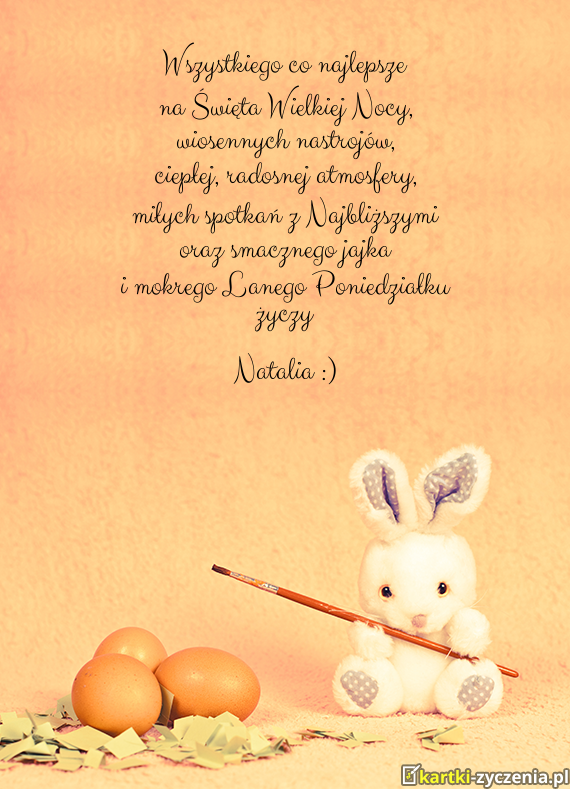 Wszystkiego co najlepsze
na Święta Wielkiej Nocy,
wiosennych nastrojów,
ciepłej, radosnej atmosfery,
miłych spotkań z Najbliższymi
oraz smacznego jajka
i mokrego Lanego Poniedziałku
życzy
Natalia :)
kartki-zyczenia.pl